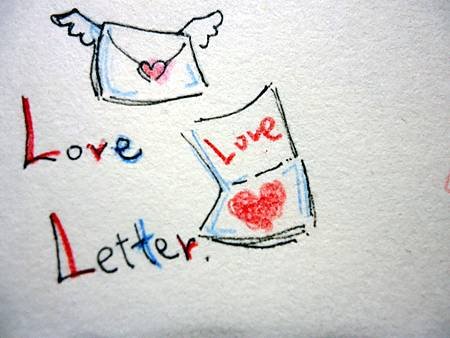 Love
Love
Letter.